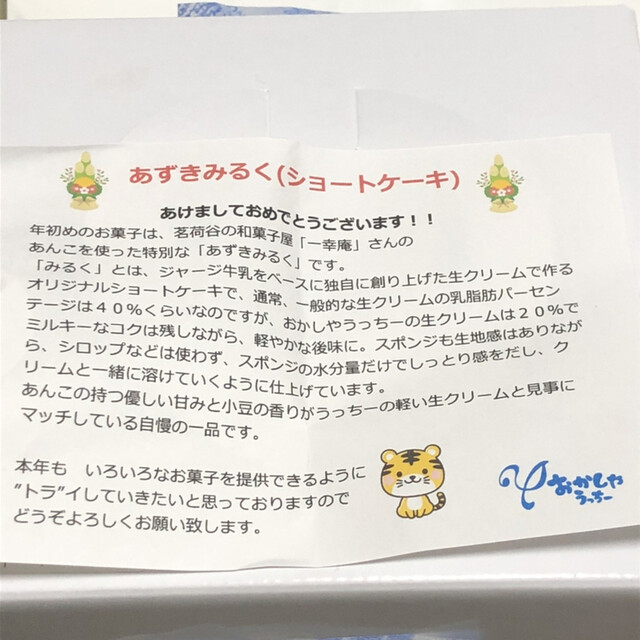 あずきみるく(ショートケーキ)
あけましておめでとうございます！！
年初めのお菓子は、茗荷谷の和菓子屋「一幸庵」さんの
あんこを使った特別な「あずきみるく」です。
「みるく」とは、ジャージ牛乳をベースに独自に創り上げた生クリームで作る
オリジナルショートケーキで、通常、一般的な生クリームの乳脂肪パーセン
テージは４０％くらいなのですが、おかしやうっちーの生クリームは２０％で
ミルキーなコクは残しながら、軽やかな後味に。スポンジも生地感はありなが
ら、シロップなどは使わず、スポンジの水分量だけでしっとり感をだし、ク
リームと一緒に溶けていくように仕上げています。
あんこの持つ優しい甘みと小豆の香りがうっちーの軽い生クリームと見事に
マッチしている自慢の一品です。
本年も　いろいろなお菓子を提供できるように
”トラ”イしていきたいと思っておりますので
どうぞよろしくお願い致します。
おかしや
うっちー